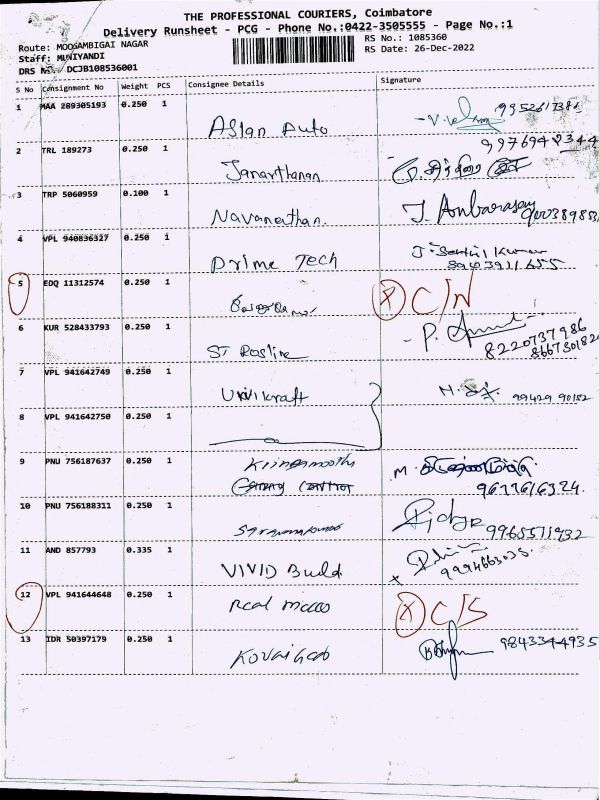 THE PROFESSIONAL COURIERS, Coimbatore
Delivery Runsheet - PCG - Phone No.:0422-3505555 - Page No.:1
Route: MOOSAMBIGAI NAGAR
RS No.: 1085360
Staff: MUNIYANDI
RS Date: 26-Dec-2022
DRS No.: DCJB108536001
S No Consignment No Weight PCS Consignee Details Signature
1 MAA 289305193 0.250 1 Asian Auto
2 TRL 189273 0.250 1 Janarthanan
3 TRP 5060959 0.100 1 Navaneethan J. Anbarasan
4 VPL 940836327 0.250 1 Prime Tech J. Senthil Kumar
5 EDQ 11312574 0.250 1 (X) C/N
6 KUR 528433793 0.250 1 ST Rosline P.
8220737986
7 VPL 941642749 0.250 1 Univikraft 99429 90182
8 VPL 941642750 0.250 1
9 PNU 756187637 0.250 1 M.
9677616324
10 PNU 756188311 0.250 1 9965511932
11 AND 857793 0.335 1 VIVID Build
9994663035
12 VPL 941644648 0.250 1 Real (X) C/S
13 IDR 50397179 0.250 1 9843344935